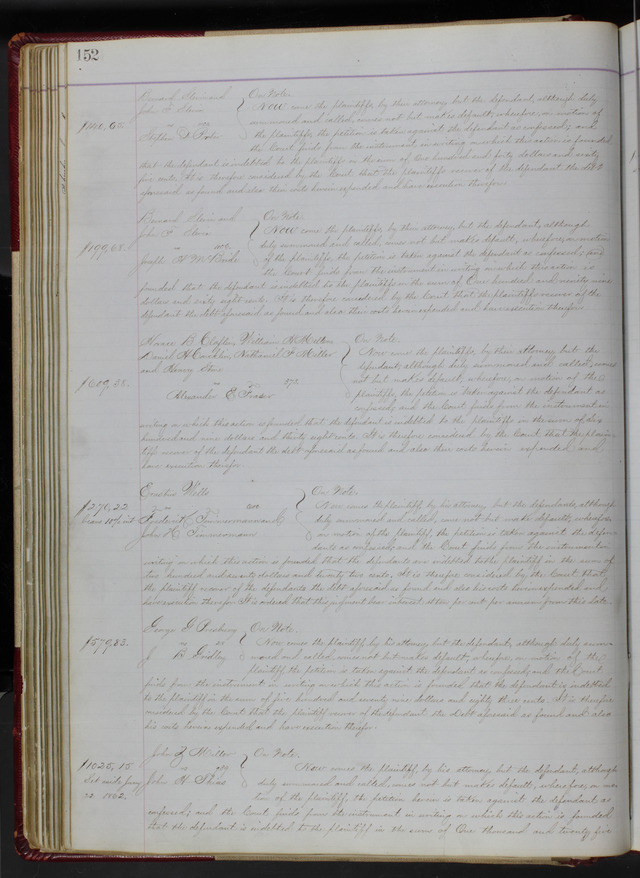 152
Bernard Slevin and
John F. Slevin
On Note.
Now come the plaintiffs by their attorney but the defendant, although duly
$140,65.
vs
summoned and called, comes not but makes default; wherefore, on motion of
Stephen D
the plaintiffs, the petition is taken against the defendant as confessed; and
the Court finds from the instrument in writing on which this action is founded
that the defendant is indebted to the plaintiffs in the sum of One hundred and forty dollars and sixty
five cents. It is therefore considered by the Court that the plaintiffs recover of the defendant the debt
aforesaid as found and also their costs herein expended and have execution therefor.
Bernard Slevin and
John F. Slevin
On Note
Now come the plaintiffs, by their attorney, but the defendant, although
$199,68.
duly summoned and called, comes not but makes default; wherefore, on motion
Joseph H. McBride
of the plaintiffs, the petition is taken against the defendant as confessed; and
the Court finds from the instrument in writing on which this action is
founded that the defendant is indebted to the plaintiffs in the sum of One hundred and ninety nine
dollars and sixty eight cents. It is therefore considered by the Court that the plaintiffs recover of the
defendant the debt aforesaid as found and also their costs herein expended and have execution therefor
Horace B. Claflin, William H. Mellen
Daniel H. Conkling, Nathaniel F. Miller
and Henry Stone
On Note.
Now come the plaintiffs, by their attorney but the
defendant, although duly summoned and called, comes
$609,38.
vs
not but makes default; wherefore, on motion of the
Alexander E. Fraser
plaintiffs, the petition is taken against the defendant as
confessed; and the Court finds from the instrument in
writing on which this action is founded that the defendant is indebted to the plaintiffs in the sum of Six
hundred and nine dollars and thirty eight cents. It is therefore considered by the Court that the plain-
tiffs recover of the defendant the debt aforesaid as found and also their costs herein expended and
have execution therefor
Erastus Wells
On Note.
$270,22.
bears 10% int
Now comes the plaintiff, by his attorney but the defendants, although
Frederick C. Zimmermann &
duly summoned and called, come not but make default; wherefore,
John H. Zimmermann
on motion of the plaintiff, the petition is taken against the defen-
dants as confessed; and the Court finds from the instrument in
writing on which this action is founded that the defendants are indebted to the plaintiff in the sum of
two hundred and seventy dollars and twenty two cents. It is therefore considered by the Court that
the plaintiff recover of the defendants the debt aforesaid as found and also his costs herein expended and
have execution therefor. It is ordered that this judgment bear interest at ten per cent per annum from this date.
George G. Presbury
On Note.
$579,83.
vs
Now comes the plaintiff by his attorney but the defendant, although duly sum-
J B Gridley
moned and called, comes not but makes default; wherefore, on motion of the
plaintiff, the petition is taken against the defendant as confessed; and the Court
finds from the instrument in writing on which this action is founded that the defendant is indebted
to the plaintiff in the sum of five hundred and seventy nine dollars and eighty three cents. It is therefore
considered by the Court that the plaintiff recover of the defendant the debt aforesaid as found and also
his costs herein expended and have execution therefor.
John Z. Miller
On Note.
$1025,15
Now comes the plaintiff, by his attorney, but the defendant, although
John H.
duly summoned and called, comes not but makes default; wherefore, on mo-
22 1862.
tion of the plaintiff, the petition herein is taken against the defendant as
confessed; and the Court finds from the instrument in writing on which this action is founded
that the defendant is indebted to the plaintiff in the sum of One thousand and twenty five